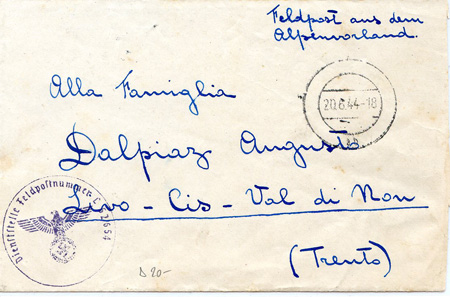 Feldpost aus dem
Alpenvorland.
Alla Famiglia
20.6.44-18
Dalpiaz Augusto
Livo - Cis - Val di Non
(Trento)
Dienststelle Feldpostnummer
D 20-